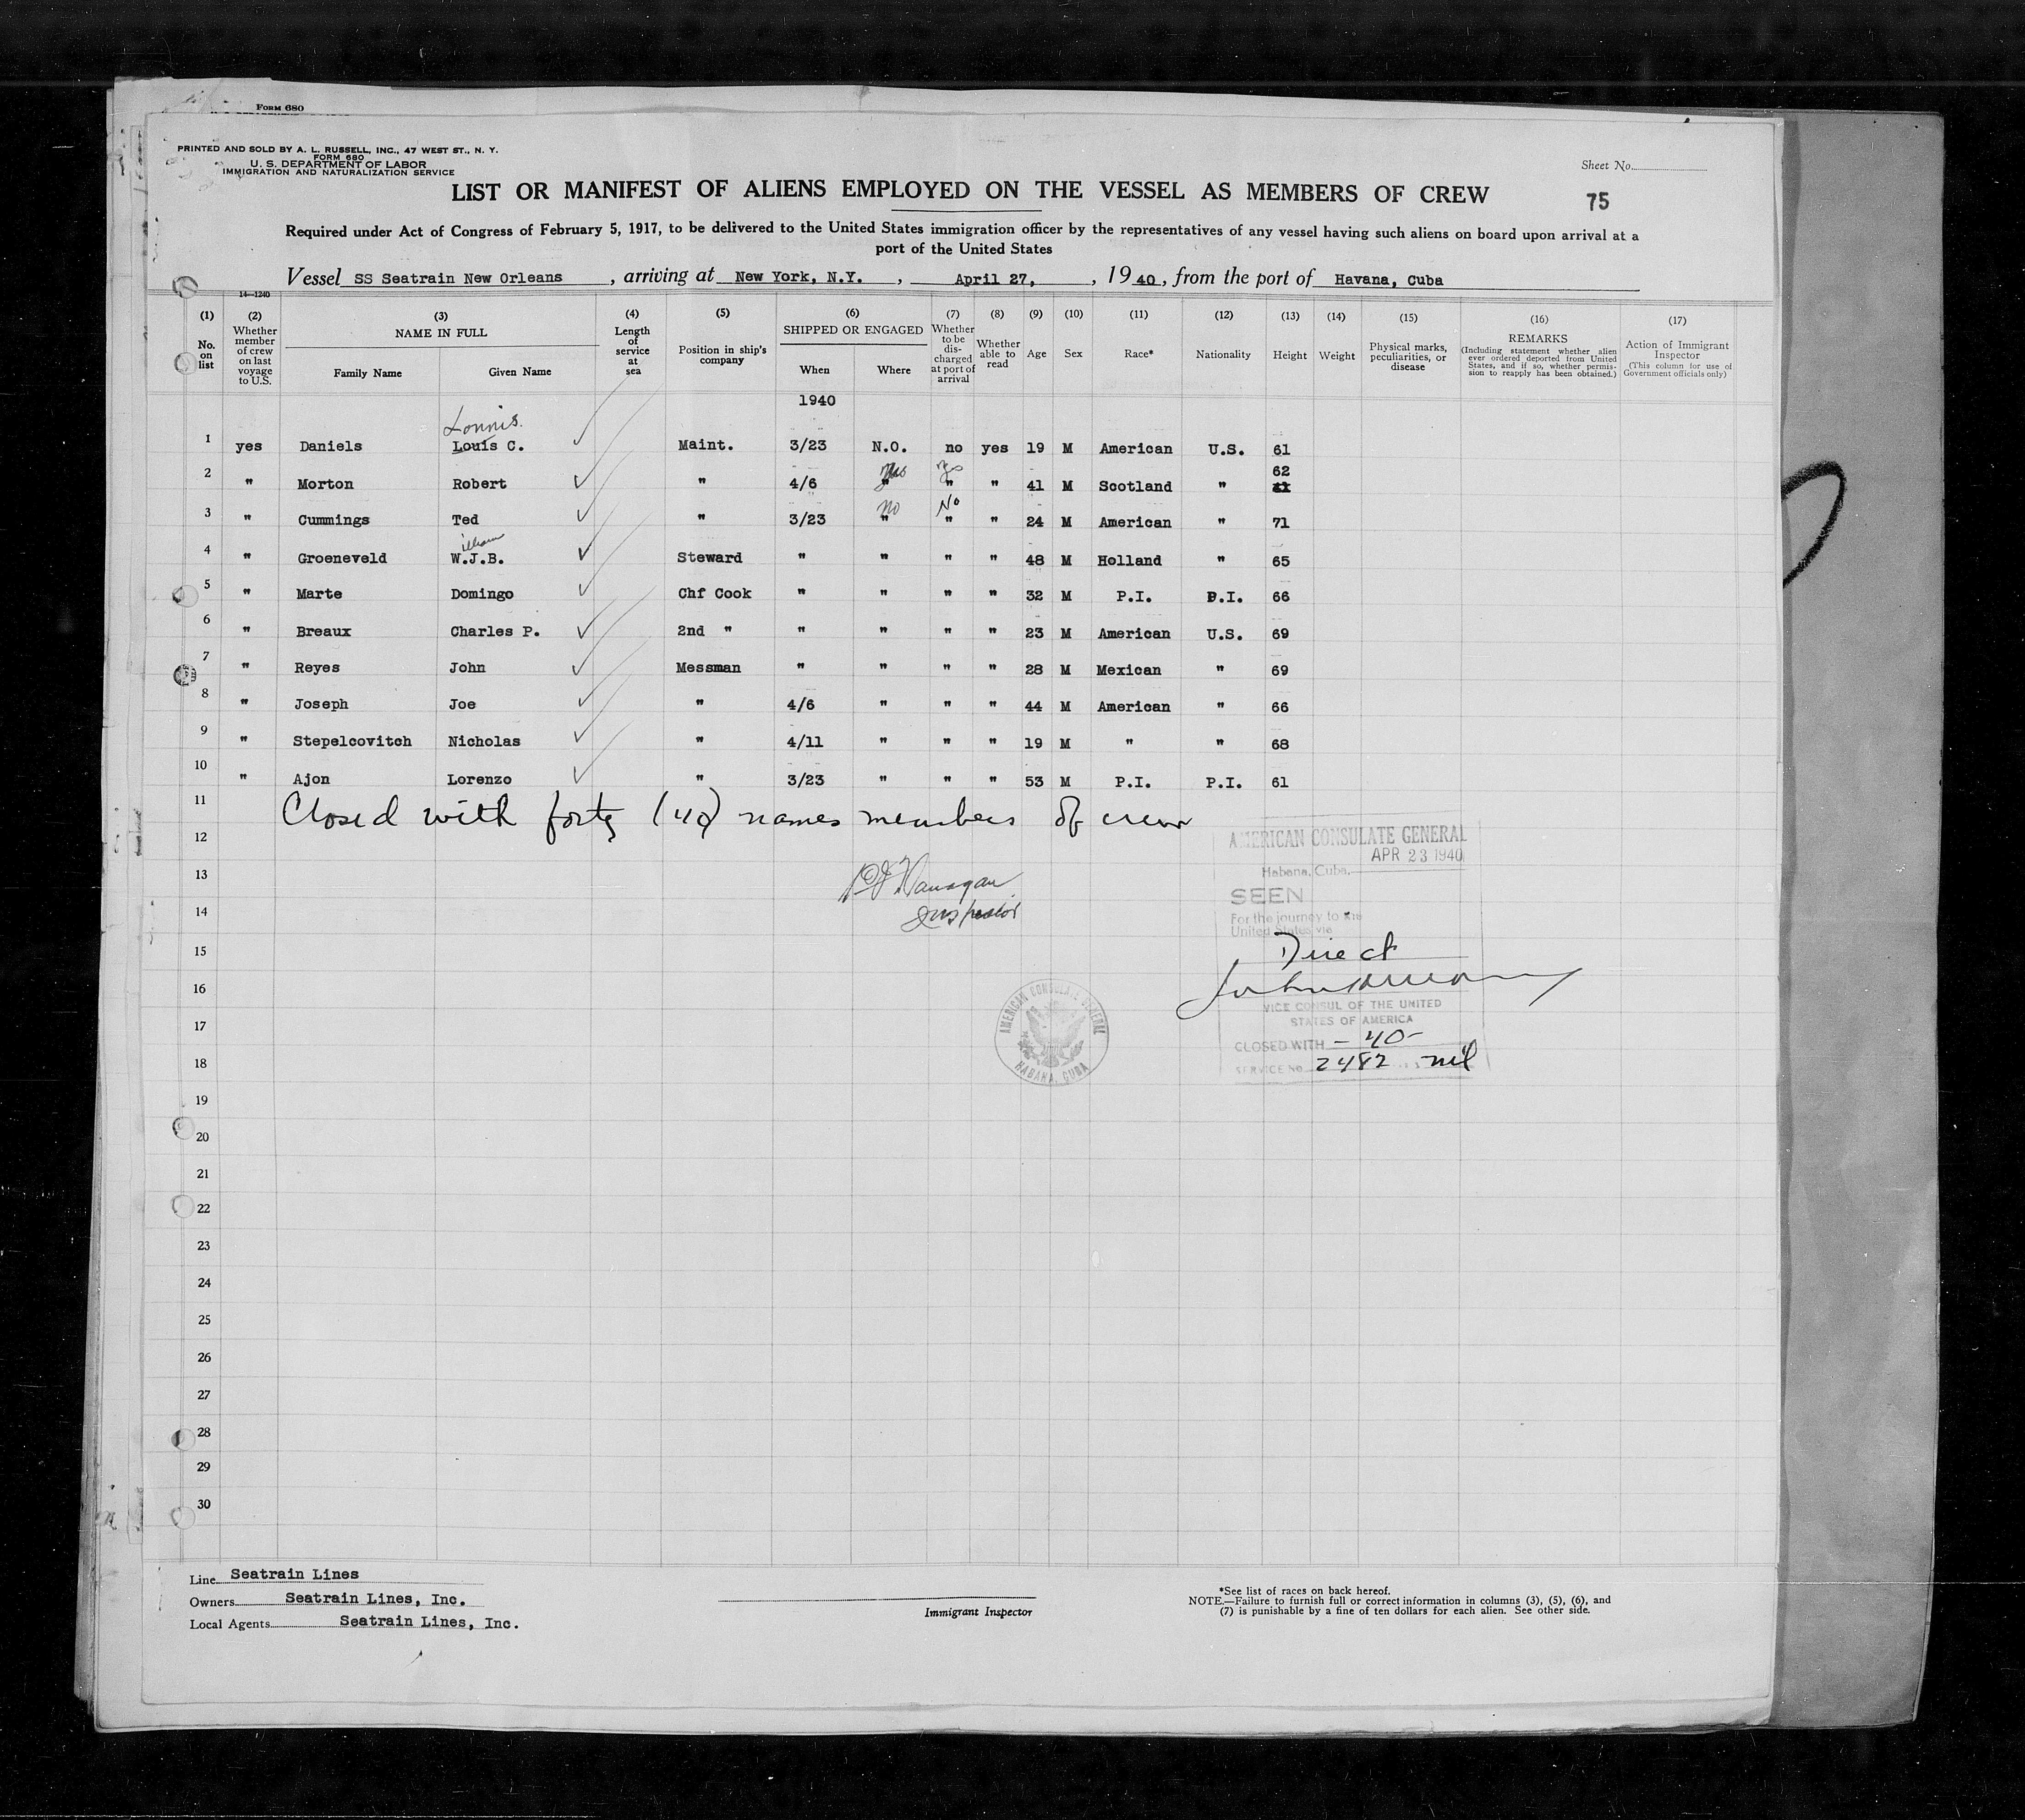 Form 680
PRINTED AND SOLD BY A. L. RUSSELL, INC., 47 WEST ST., N. Y.
FORM 680
U. S. DEPARTMENT OF LABOR
IMMIGRATION AND NATURALIZATION SERVICE
Sheet No.
LIST OR MANIFEST OF ALIENS EMPLOYED ON THE VESSEL AS MEMBERS OF CREW
75
Required under Act of Congress of February 5, 1917, to be delivered to the United States immigration officer by the representatives of any vessel having such aliens on board upon arrival at a
port of the United States
Vessel SS Seatrain New Orleans, arriving at New York, N.Y., April 27, , 1940, from the port of Havana, Cuba
14-1240
(1) No. on list (2) Whether member of crew on last voyage to U.S. (3) NAME IN FULL Family Name Given Name (4) Length of service at sea (5) Position in ship's company (6) SHIPPED OR ENGAGED When Where (7) Whether to be discharged at port of arrival (8) Whether able to read (9) Age (10) Sex (11) Race* (12) Nationality (13) Height (14) Weight (15) Physical marks, peculiarities, or disease (16) REMARKS (Including statement whether alien ever ordered deported from United States, and if so, whether permission to reapply has been obtained.) (17) Action of Immigrant Inspector (This column for use of Government officials only)
1940
Lonnis.
1 yes Daniels Louis C. Maint. 3/23 N.O. no yes 19 M American U.S. 61
yes yes 62
2 " Morton Robert " 4/6 " " " 41 M Scotland "
no No
3 " Cummings Ted " 3/23 " " " 24 M American " 71
illiam
4 " Groeneveld W.J.B. Steward " " " " 48 M Holland " 65
5 " Marte Domingo Chf Cook " " " " 32 M P.I. P.I. 66
6 " Breaux Charles P. 2nd " " " " " 23 M American U.S. 69
7 " Reyes John Messman " " " " 28 M Mexican " 69
8 " Joseph Joe " 4/6 " " " 44 M American " 66
9 " Stepelcovitch Nicholas " 4/11 " " " 19 M " " 68
10 " Ajon Lorenzo " 3/23 " " " 53 M P.I. P.I. 61
11
Closed with forty (40) names members of crew
12
13
14
Inspector
15
16
17
18
19
20
21
22
23
24
25
26
27
28
29
30
AMERICAN CONSULATE GENERAL
APR 23 1940
Habana, Cuba.
SEEN
For the journey to the
United States via
Direct
VICE CONSUL OF THE UNITED
STATES OF AMERICA
CLOSED WITH - 40 -
SERVICE No. 2482 nil
AMERICAN CONSULATE GENERAL
HABANA, CUBA
Line Seatrain Lines
Owners Seatrain Lines, Inc.
Local Agents Seatrain Lines, Inc.
Immigrant Inspector
*See list of races on back hereof.
NOTE.—Failure to furnish full or correct information in columns (3), (5), (6), and
(7) is punishable by a fine of ten dollars for each alien. See other side.